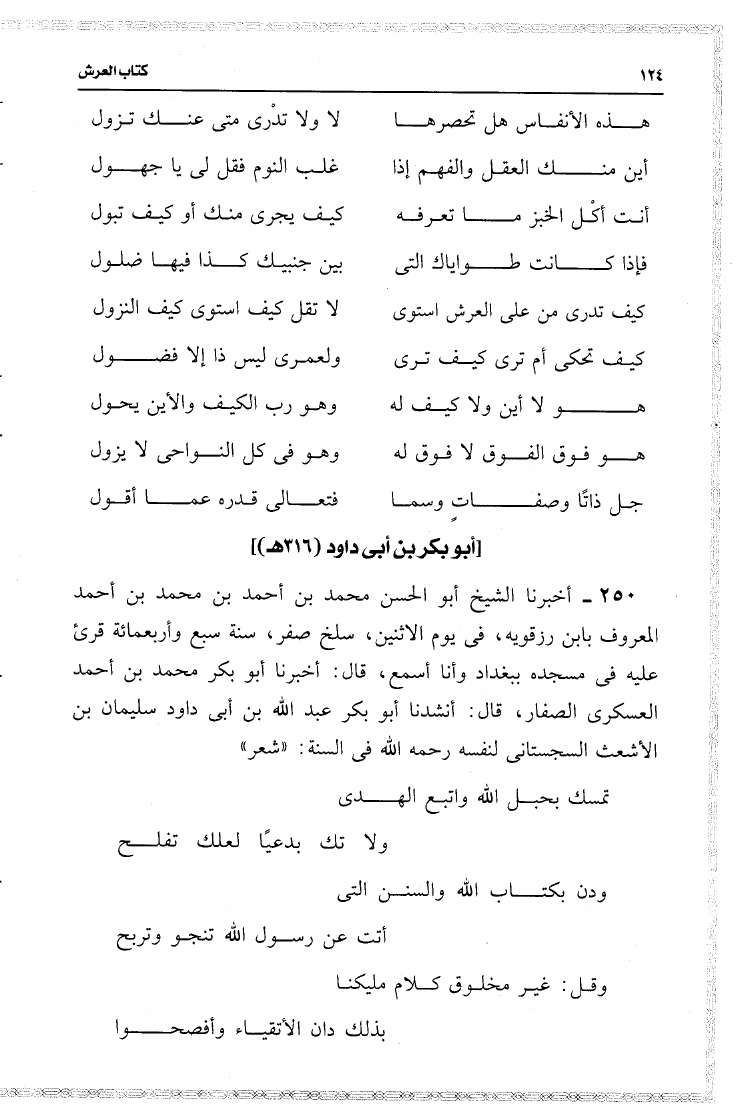 ١٢٤ كتاب العرش
هـــذه الأنفــاس هل تحصرهــا لا ولا تدْرى متى عنــك تــزول
أين منــك العقــل والفهــم إذا غلــب النوم فقل لى يا جهــول
أنــت أكْل الخبز مــا تعــرفــه كيــف يجرى منــك أو كيــف تبول
فإذا كــانت طــواياك التى بين جنبيــك كــذا فيهــا ضلــول
كيف تدرى من على العرش استوى لا تقل كيف استوى كيف النزول
كيــف تحكى أم ترى كيــف تــرى ولعمــرى ليس ذا إلا فضــول
هــو لا أين ولا كيــف له وهــو رب الكيــف والأين يحــول
هــو فــوق الفــوق لا فــوق له وهــو فى كل النــواحى لا يزول
جــل ذاتًا وصفــاتٍ وسمــا فتعــالى قــدره عمــا أقــول
[أبو بكر بن أبى داود (٣١٦هـ)]
٢٥٠ ـ أخبرنا الشيخ أبو الحسن محمد بن أحمد بن محمد بن أحمد
المعروف بابن رزقويه، فى يوم الاثنين، سلخ صفر، سنة سبع وأربعمائة قرئ
عليه فى مسجده ببغداد وأنا أسمع، قال: أخبرنا أبو بكر محمد بن أحمد
العسكرى الصفار، قال: أنشدنا أبو بكر عبد الله بن أبى داود سليمان بن
الأشعث السجستانى لنفسه رحمه الله فى السنة: «شعر»
تمسك بحبــل الله واتبــع الهــدى
ولا تك بدعيًا لعلك تفلــح
ودن بكتــاب الله والسنــن التى
أتت عن رســول الله تنجــو وتربح
وقــل: غيــر مخلــوق كــلام مليكنــا
بذلك دان الأتقيــاء وأفصحــوا